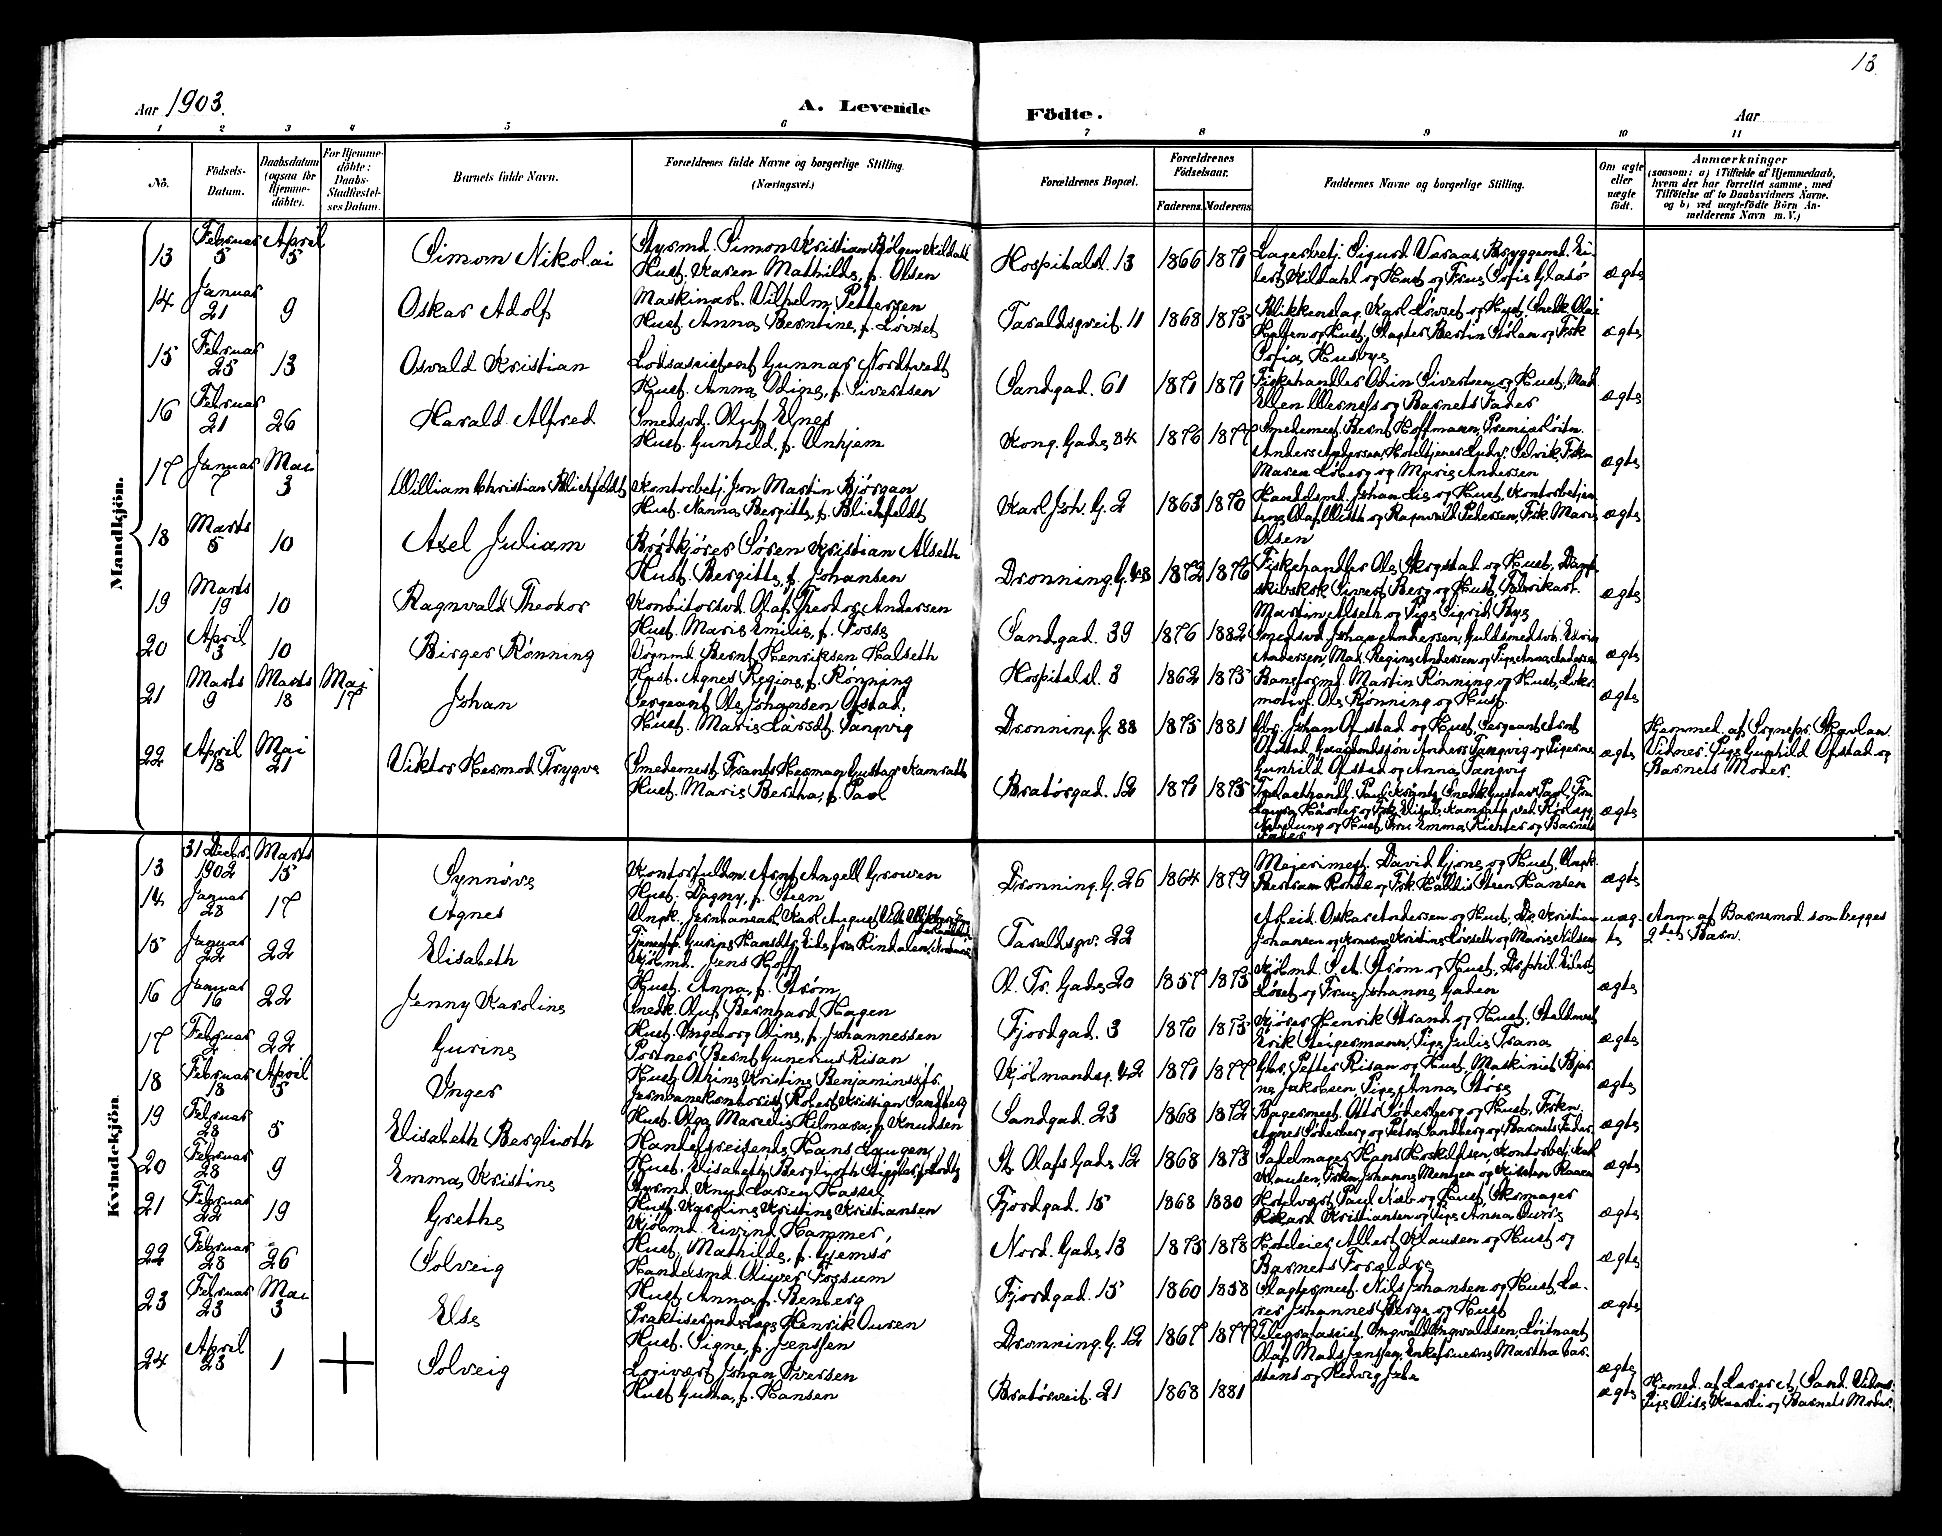 13
Aar 1903.
A. Levende
Födte.
Aar
1 2 3 4 5 6 7 8 9 10 11
Nö.
Födsels-
Datum.
Daabsdatum
(ogsaa for
Hjemme-
döbte).
For Hjemme-
döbte:
Daabs-
Stadfæstel-
ses Datum.
Barnets fulde Navn.
Forældrenes fulde Navne og borgerlige Stilling.
(Næringsvei.)
Forældrenes Bopæl.
Forældrenes
Födselsaar.
Faderens. Moderens.
Faddernes Navne og borgerlige Stilling.
Om ægte
eller
uægte
födt.
Anmærkninger
(saasom: a) i Tilfælde af Hjemmedaab,
hvem der har forrettet samme, med
Tilföielse af to Daabsvidners Navne.
og b) ved uægtefödte Börn An-
melderens Navn m. V.)
Mandkjön.
13 Februar 5 April 5 Simon Nikolai
Styrmd. Simon Kristian Kildahl
Hust. Karen Mathilde, f. Olsen
Hospitalsl. 13 1866 1871
Lagerbetj. Sigurd Bryggemd. Ei-
lert Kildahl og Hust. og Frue Sofie
ægte
14 Januar 21 9 Oskar Adolf
Maskinarb. Vilhelm Pettersen
Hust. Anna Berntine, f. Løvset
Taraldsgveit. 11 1868 1875
Blikkenslag. Karl Løvset og Hust, Snedk. Olai
og Hust, Slagter Bertin og Frk
Sofie Husbye
ægte
15 Februar 25 13 Osvald Kristian
Lodsassistent Gunnar Nordtvedt
Hust. Anna Odine, f. Sivertsen
Sandgad. 61 1871 1871
Fiskehandler Odin Sivertsen og Hust, Mad.
Ellen Werness og Barnets Fader
ægte
16 Februar 21 26 Harald Alfred
Smedsvd. Oluf Elnes
Hust. Gunhild, f. Unhjem
Kong. Gade 34 1876 1877
Smedemest. Bernt Hoffmann, Premierløitn.
Anders Andersen, Hoteltjener Frkn
Maren Løberg og Marie Andersen
ægte
17 Januar 7 Mai 3 William Christian Blichfeldt
Kontorbetj. Jon Martin Bjørgan
Hust. Nanna Bergitte, f. Blichfeldt
Karl Joh. G. 2 1863 1870
Handelsmd. Johan Lie og Hust, Kontorbetjen-
tene Olaf With og Ragnvald Petersen, Frk. Marie
Olsen
ægte
18 Marts 5 10 Axel Juliam
Brødkjører Søren Kristian Alseth
Hust. Bergitte, f. Johansen
Dronning. G. 48 1872 1876
Fiskehandler Ole og Hust, Damp-
skibskok Sivert Berg og Hust, Fabrikarb.
Martin Alseth og Pige Sigrid Bye
ægte
19 Marts 19 10 Ragnvald Theodor
Konditorsvd. Olaf Theodor Andersen
Hust. Marie Emilie, f. Fosse
Sandgad. 39 1876 1882
Smedsvd. Johan Andersen, Guldsmedsvd.
Andersen, Mad. Regine Andersen og Pige Anna Andersen
ægte
20 April 3 10 Birger Rønning
Vognmd Bernt Henriksen Halseth
Hust. Agnes Regine, f. Rønning
Hospitalsl. 3 1862 1875
Baneformd. Martin Rønning og Hust, Loko-
motivf. Ole Rønning og Hust.
ægte
21 Marts 9 Marts 18 Mai 17 Johan
Sergeant Ole Johansen Ofstad,
Hust. Marie Larsdt. Tangvig
Dronning. G. 88 1875 1881
Gbr. Johan Ofstad og Hust, Sergeant
Ofstad, Anders Tangvig og Pigerne
Gunhild Ofstad og Anna Tangvig
ægte
Hjemmed. af Sognepr.
Vidner: Pige Gunhild Ofstad og
Barnets Moder.
22 April 18 Mai 21 Viktor Hermod Trygve
Smedemest. Frants Herman Gustav Kamrath
Hust. Marie Bertha, f. Paul
Bratørgad. 12 1871 1875
Gustav Paul,
og Hust, Fru Emma Richter og Barnets
Fader
ægte
Kvindekjön.
13 31 Decbr. 1902 Marts 15 Synnøve
Kontorfuldm. Arnt Angell Growen
Hust. Dagny, f. Steen
Dronning. G. 26 1864 1879
Meierimest. David Gjone og Hust, Ungk.
Bertram Rohde og Frk Halldis Steen Hansen
ægte
14 Januar 28 17 Agnes
Ungk. Jernbanearb. Karl August
Tjenestep. Gurine Hansdtr. Eide fra Rindalen, Nordmøre
Taraldsgv. 22
Arbeid. Oskar Andersen og Hust, Do. Kristian
Johansen og Konerne Kristine Løvseth og Marie Nilsen
uæg-
te
Angv. af Barnemod. som begges
2det Barn.
15 Januar 22 22 Elisabeth
Kjøbmd. Jens Hoff
Hust. Anna, f. Strøm
O. Tr. Gade 20 1857 1873
Kjøbmd. S. A. Strøm og Hust, Dr. phil. Eilert
Løset og Frue Johanne Gaden
ægte
16 Januar 16 22 Jenny Karoline
Snedk. Oluf Bernhard Hagen
Hust. Ingeborg Oline, f. Johannessen
Fjordgad. 3 1870 1875
Kjører Henrik Strand og Hust, Staldmest
Erik Steigermann, Pige Julie Trana
ægte
17 Februar 2 22 Gurine
Portner Bernt Gunerius Risan
Hust. Othine Kristine Benjaminsdtr.
Kjøbmandsg. 42 1871 1877
Gbr. Petter Risan og Hust, Maskinist Bjar-
ne Jakobsen, Pige Anna Støre
ægte
18 Februar 18 April 5 Inger
Jernbanekontorist Robert Kristian Sandberg
Hust. Olga Marcelie Hilmara, f. Knudsen
Sandgad. 23 1868 1872
Bagermest. Otto Søderberg og Hust, Frkn.
Agnes Søderberg og Petra Sandberg og Barnets Fader
ægte
19 Februar 28 5 Elisabeth Berglioth
Handelsreisende Hans Laugen,
Hust. Elisabeth Bergliot
St. Olafs Gade 12 1868 1873
Sadelmager Hans Kontorbetj.
Klausen, Frkn Johanne Mentzen og Kristen
ægte
20 Februar 28 9 Emma Kristine
Styrmd. Knud Larsen Hassel
Hust. Karoline Kristine Kristiansen
Fjordgad. 15 1868 1880
Hotelvært Paul Næb og Hust, Skomager
Rikard Kristiansen og Pige Anna
ægte
21 Februar 22 19 Grethe
Kjøbmd. Eivind Hammer,
Hust. Mathilde, f. Gjemsø
Nord. Gade 13 1875 1878
Hoteleier Albert Klausen og Hust og
Barnets Forældre
ægte
22 Februar 28 26 Solveig
Handelsmd. Oliver Fossum
Hust. Anna, f. Benberg
Fjordgad. 15 1860 1858
Slagtermest. Nils Johansen og Hust, Læ-
rer Johannes Berge og Hust
ægte
23 Februar 23 Mai 3 Else
Praktiserende Læge Henrik Ouren
Hust. Signe, f. Jenssen
Dronning. G. 12 1867 1877
Telegrafassist. Ingvald Ingvaldsen, Løitnant
Olaf Mads Jenssen, Enkefruerne Martha Car-
stens og Hedvig
ægte
24 April 23 1 Solveig
Logivært Johan Iversen
Hust. Gusta, f. Hansen
Bratørveit. 21 1868 1881
ægte
Hjemmed. af Sand. Vidner:
Pige og Barnets Moder.